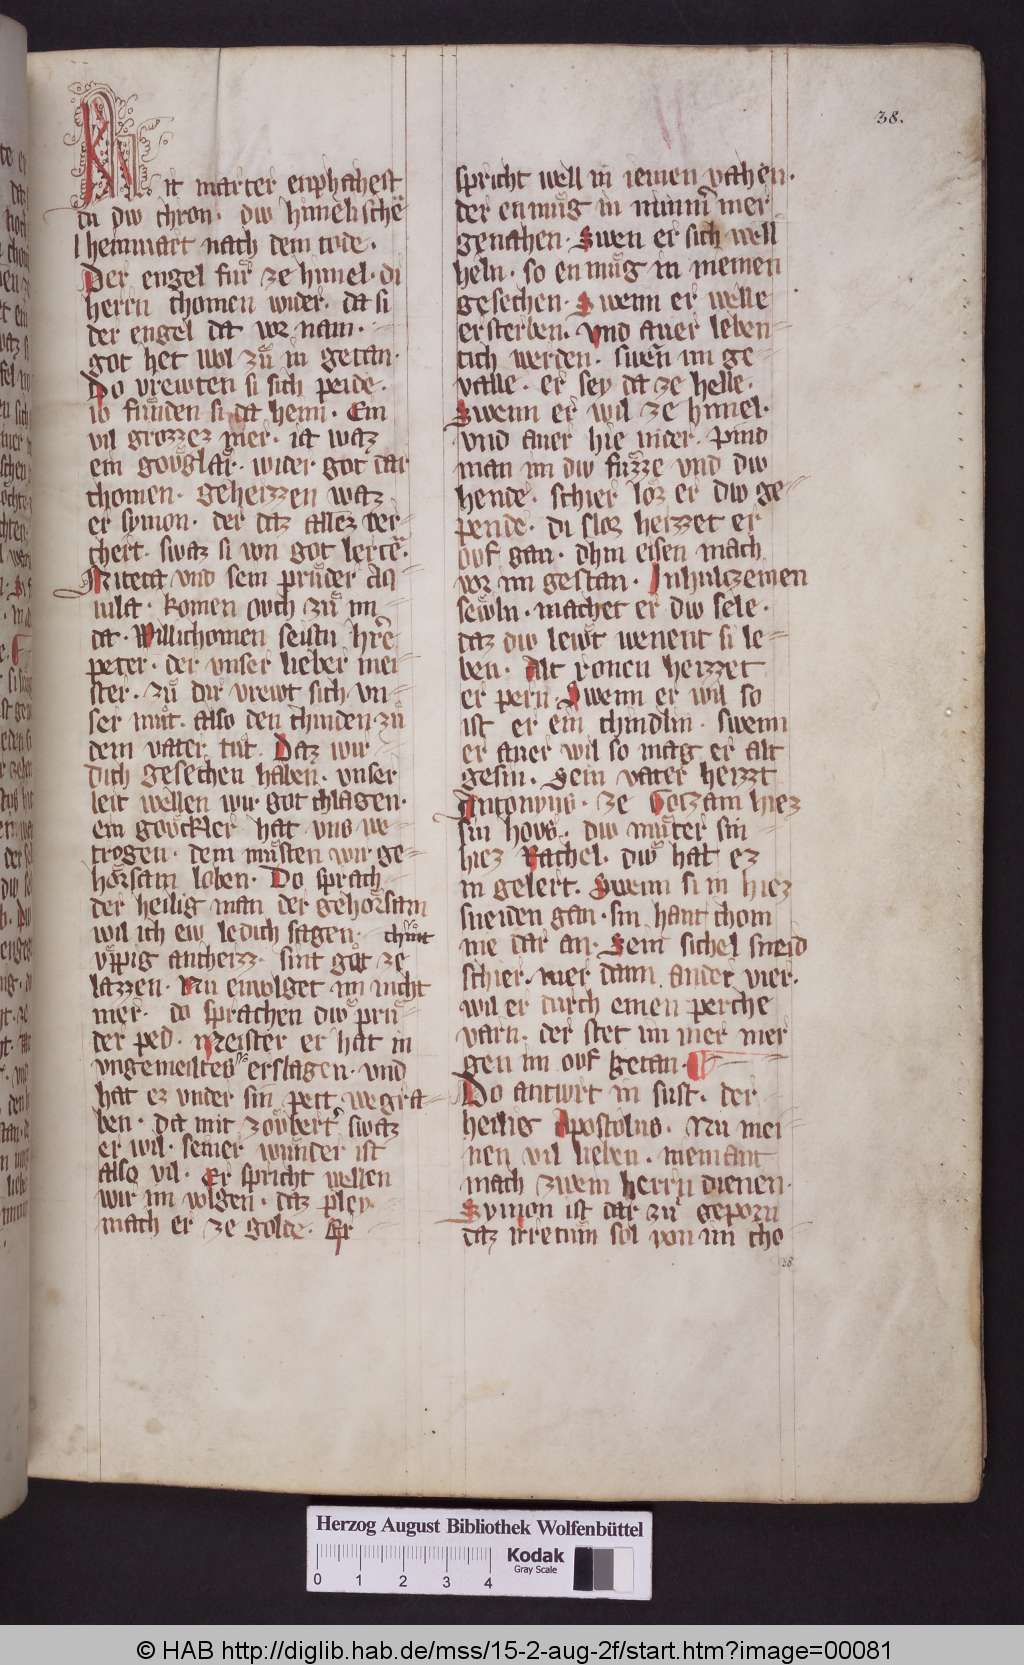 38.
Mit marter enphahest
du diw chron. diw himelischē
hemvart nach dem tode.
Der engel fuͤr ze himel. di
herrn chomen wider. da si
der engel da vor nam.
got het wol zuͦ in getan.
Do vrewten si sich peide.
io funden si da heim. Ein
vil grozzez mer. ia waz
ein gouglaͤr. wider got dar
chomen. geheizzen waz
er symon. der daz allez ver-
chert. swaz si von got lertē.
Niceta vnd sein pruͤder Aq
uila. komen ouch zuͦ im
da. Willichomen seistu hr̄e
peter. der vnser lieber mei-
ster. zuͦ dir vrewt sich vn-
ser muͦt. also den chinden zuͦ
dem vater tuͦt. Daz wir
dich gesechen haben. vnser
leit wellen wir got chlagen.
ein gouckler hat vns we-
trogen. dem muͤsten wir ge-
hoͤrsam loben. Do sprach
der heilig man der gehoͤrsam
wil ich ew ledich sagen. chuͤnt
uͤppig antheizz. sint guͦt ze
lazzen. Nu envolget im nicht
mer. do sprachen diw pruͤ-
der ped. Meister er hat in
vngemeiltes erslagen. vnd
hat ez vnder sin pett wegra-
ben. da mit zoubert swaz
er wil. seiner wunder ist
also vil. Er spricht wellen
wir im volgen. daz pley
mach er ze golde. Er
spricht well in iemen vahen.
der enmuͤg in nimm̄ mer
genahen. Swen er sich well
heln. so enmuͤg in niemen
gesechen. Swenn er welle
ersterben. vnd auer leben-
tich werden. swen im ge-
valle. er sey da ze helle.
Swenn er wil ze himel.
vnd auer hie nider. pind
man im diw fuͤzze vnd diw
hende. schier loͤz er diw ge-
pende. di sloz heizzet er
ouf gan. dhin eisen mach
vor im gestan. In hulczeinen
sewln. machet er diw sele.
daz diw lewt wenent si le-
ben. Alt ronen heizzet
er pern. Swenn er wil so
ist er ein chindlin. swenn
er auer wil so mag er alt
gesin. Sein vater heizzt
Antonyus. ze Gorzam hiez
sin hovs. diw muͤter sin
hiez Rachel. diw hat ez
in gelert. Swenn si in hiez
sneiden gan. sin hant chom
nie dar an. Sein sichel sneid
schier. mer dann ander vier.
wil er durch einen perche
varn. der stet im imer mer
gen im ouf getan.
Do antwrt in sust. der
heilig Apostolus. Nu mei-
nen vil lieben. niemant
mach zwein herrn dienen.
Symon ist dar zuͦ geporn
daz irretuͦm sol von im cho
38
Herzog August Bibliothek Wolfenbüttel
Kodak
Gray Scale
0 1 2 3 4
© HAB http://diglib.hab.de/mss/15-2-aug-2f/start.htm?image=00081